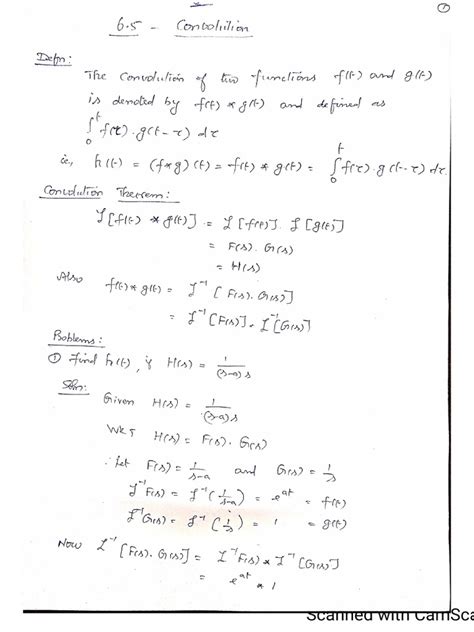 ①
6.5 - Convolution
Defn:
The convolution of two functions f(t) and g(t)
is denoted by f(t) * g(t) and defined as
∫₀ᵗ f(τ).g(t-τ) dτ
ie, h(t) = (f*g)(t) = f(t) * g(t) = ∫₀ᵗ f(τ).g(t-τ) dτ.
Convolution Theorem:
ℒ[f(t) * g(t)] = ℒ[f(t)]. ℒ[g(t)]
= F(s). G(s)
= H(s)
Also f(t) * g(t) = ℒ⁻¹[F(s). G(s)]
= ℒ⁻¹[F(s)] * ℒ⁻¹[G(s)]
Problems:
① Find h(t), if H(s) = 1/((s-a)s)
Soln:
Given H(s) = 1/((s-a)s)
WKT H(s) = F(s). G(s)
∴ Let F(s) = 1/(s-a) and G(s) = 1/s
ℒ⁻¹F(s) = ℒ⁻¹(1/(s-a)) = eᵃᵗ = f(t)
ℒ⁻¹G(s) = ℒ⁻¹(1/s) = 1 = g(t)
Now ℒ⁻¹[F(s). G(s)] = ℒ⁻¹F(s) * ℒ⁻¹[G(s)]
= eᵃᵗ * 1
Scanned with CamSca